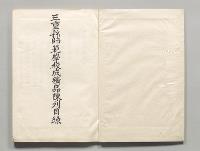 三重縣師範學校成績品陳列目録